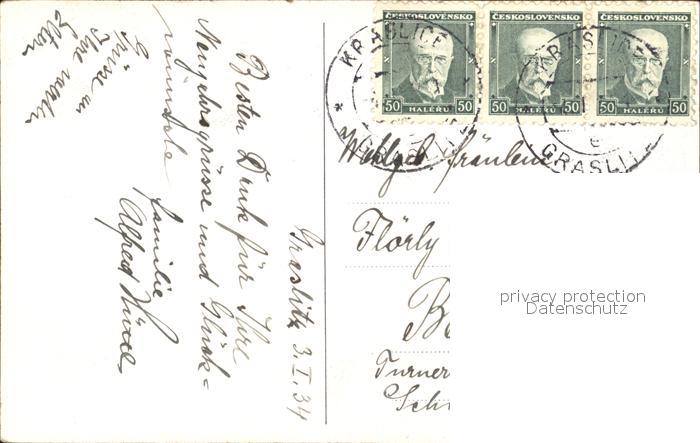 Graslitz 3.I.34
Besten Dank für Ihre
Neujahrsgrüsse und Glück-
wünsche
Familie
Alfred
Grüsse an
Ihre
Eltern
ČESKOSLOVENSKO
50 HALÉŘŮ 50
ČESKOSLOVENSKO
50 HALÉŘŮ 50
ČESKOSLOVENSKO
50 HALÉŘŮ 50
* KRASLICE
GRASLITZ
KRASLICE
e
GRASLI
Fräulein
Flörly
Be
Turner
Sch
privacy protection
Datenschutz